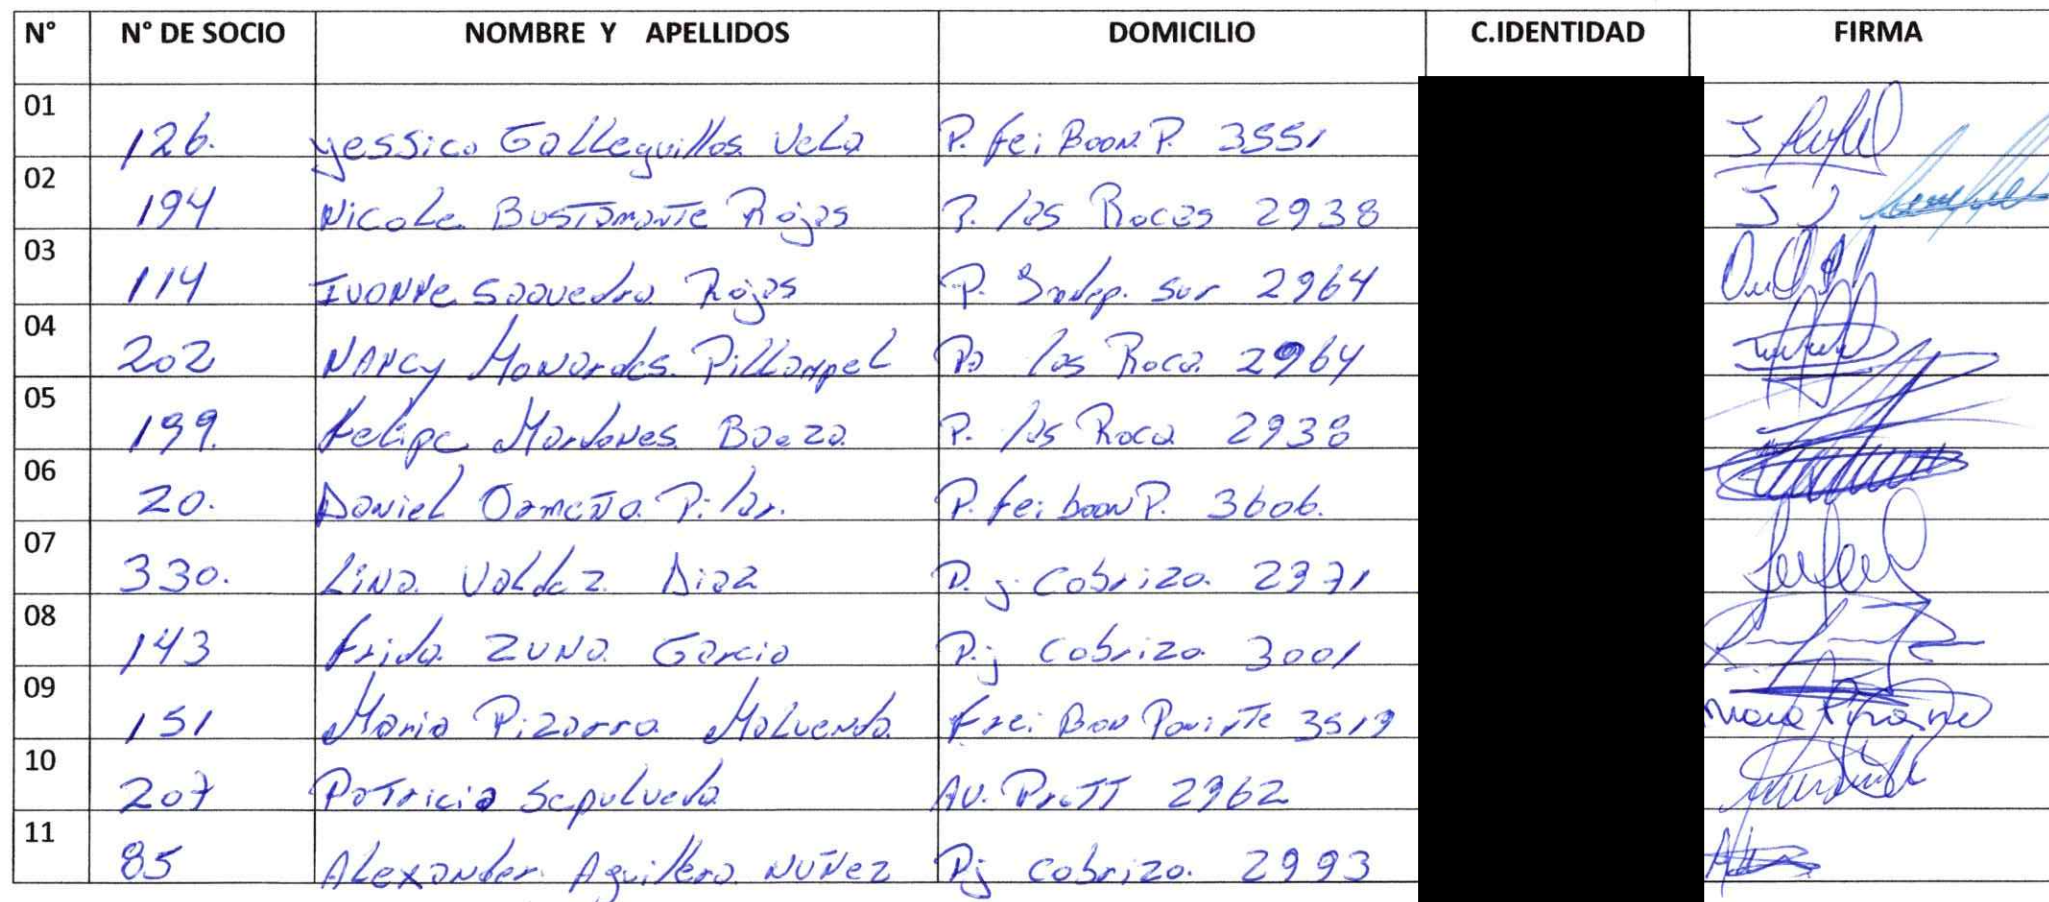 N° N° DE SOCIO NOMBRE Y APELLIDOS DOMICILIO C.IDENTIDAD FIRMA
01 126. Yessica Galleguillos Vela P. fei Boon P. 3551
02 194 Nicole Bustamante Rojas P. las Rocas 2938
03 114 Ivonne Saavedra Rojas P. Indep. Sur 2964
04 202 Nancy Monardes Pillampel Pa las Roca 2964
05 199. Felipe Mardones Baeza P. las Roca 2938
06 20. Daniel Oameño Pilar. P. fei boon P. 3606.
07 330. Lina Valdez Diaz P.j. Cobriza 2971
08 143 Frida Zuna Garcia P.j Cobriza 3001
09 151 Maria Pizarro Maluenda Frei Bon Poniente 3519
10 207 Patricia Sepulveda AV. Pratt 2962
11 85 Alexander Aguillera Nuñez Pj Cobriza 2993